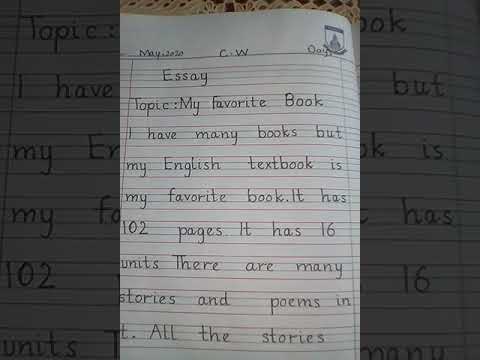 May,2020 C.W Day:
Essay
Topic:My favorite Book
I have many books but
my English textbook is
my favorite book.It has
102 pages. It has 16
units There are many
stories and poems in
t. All the stories